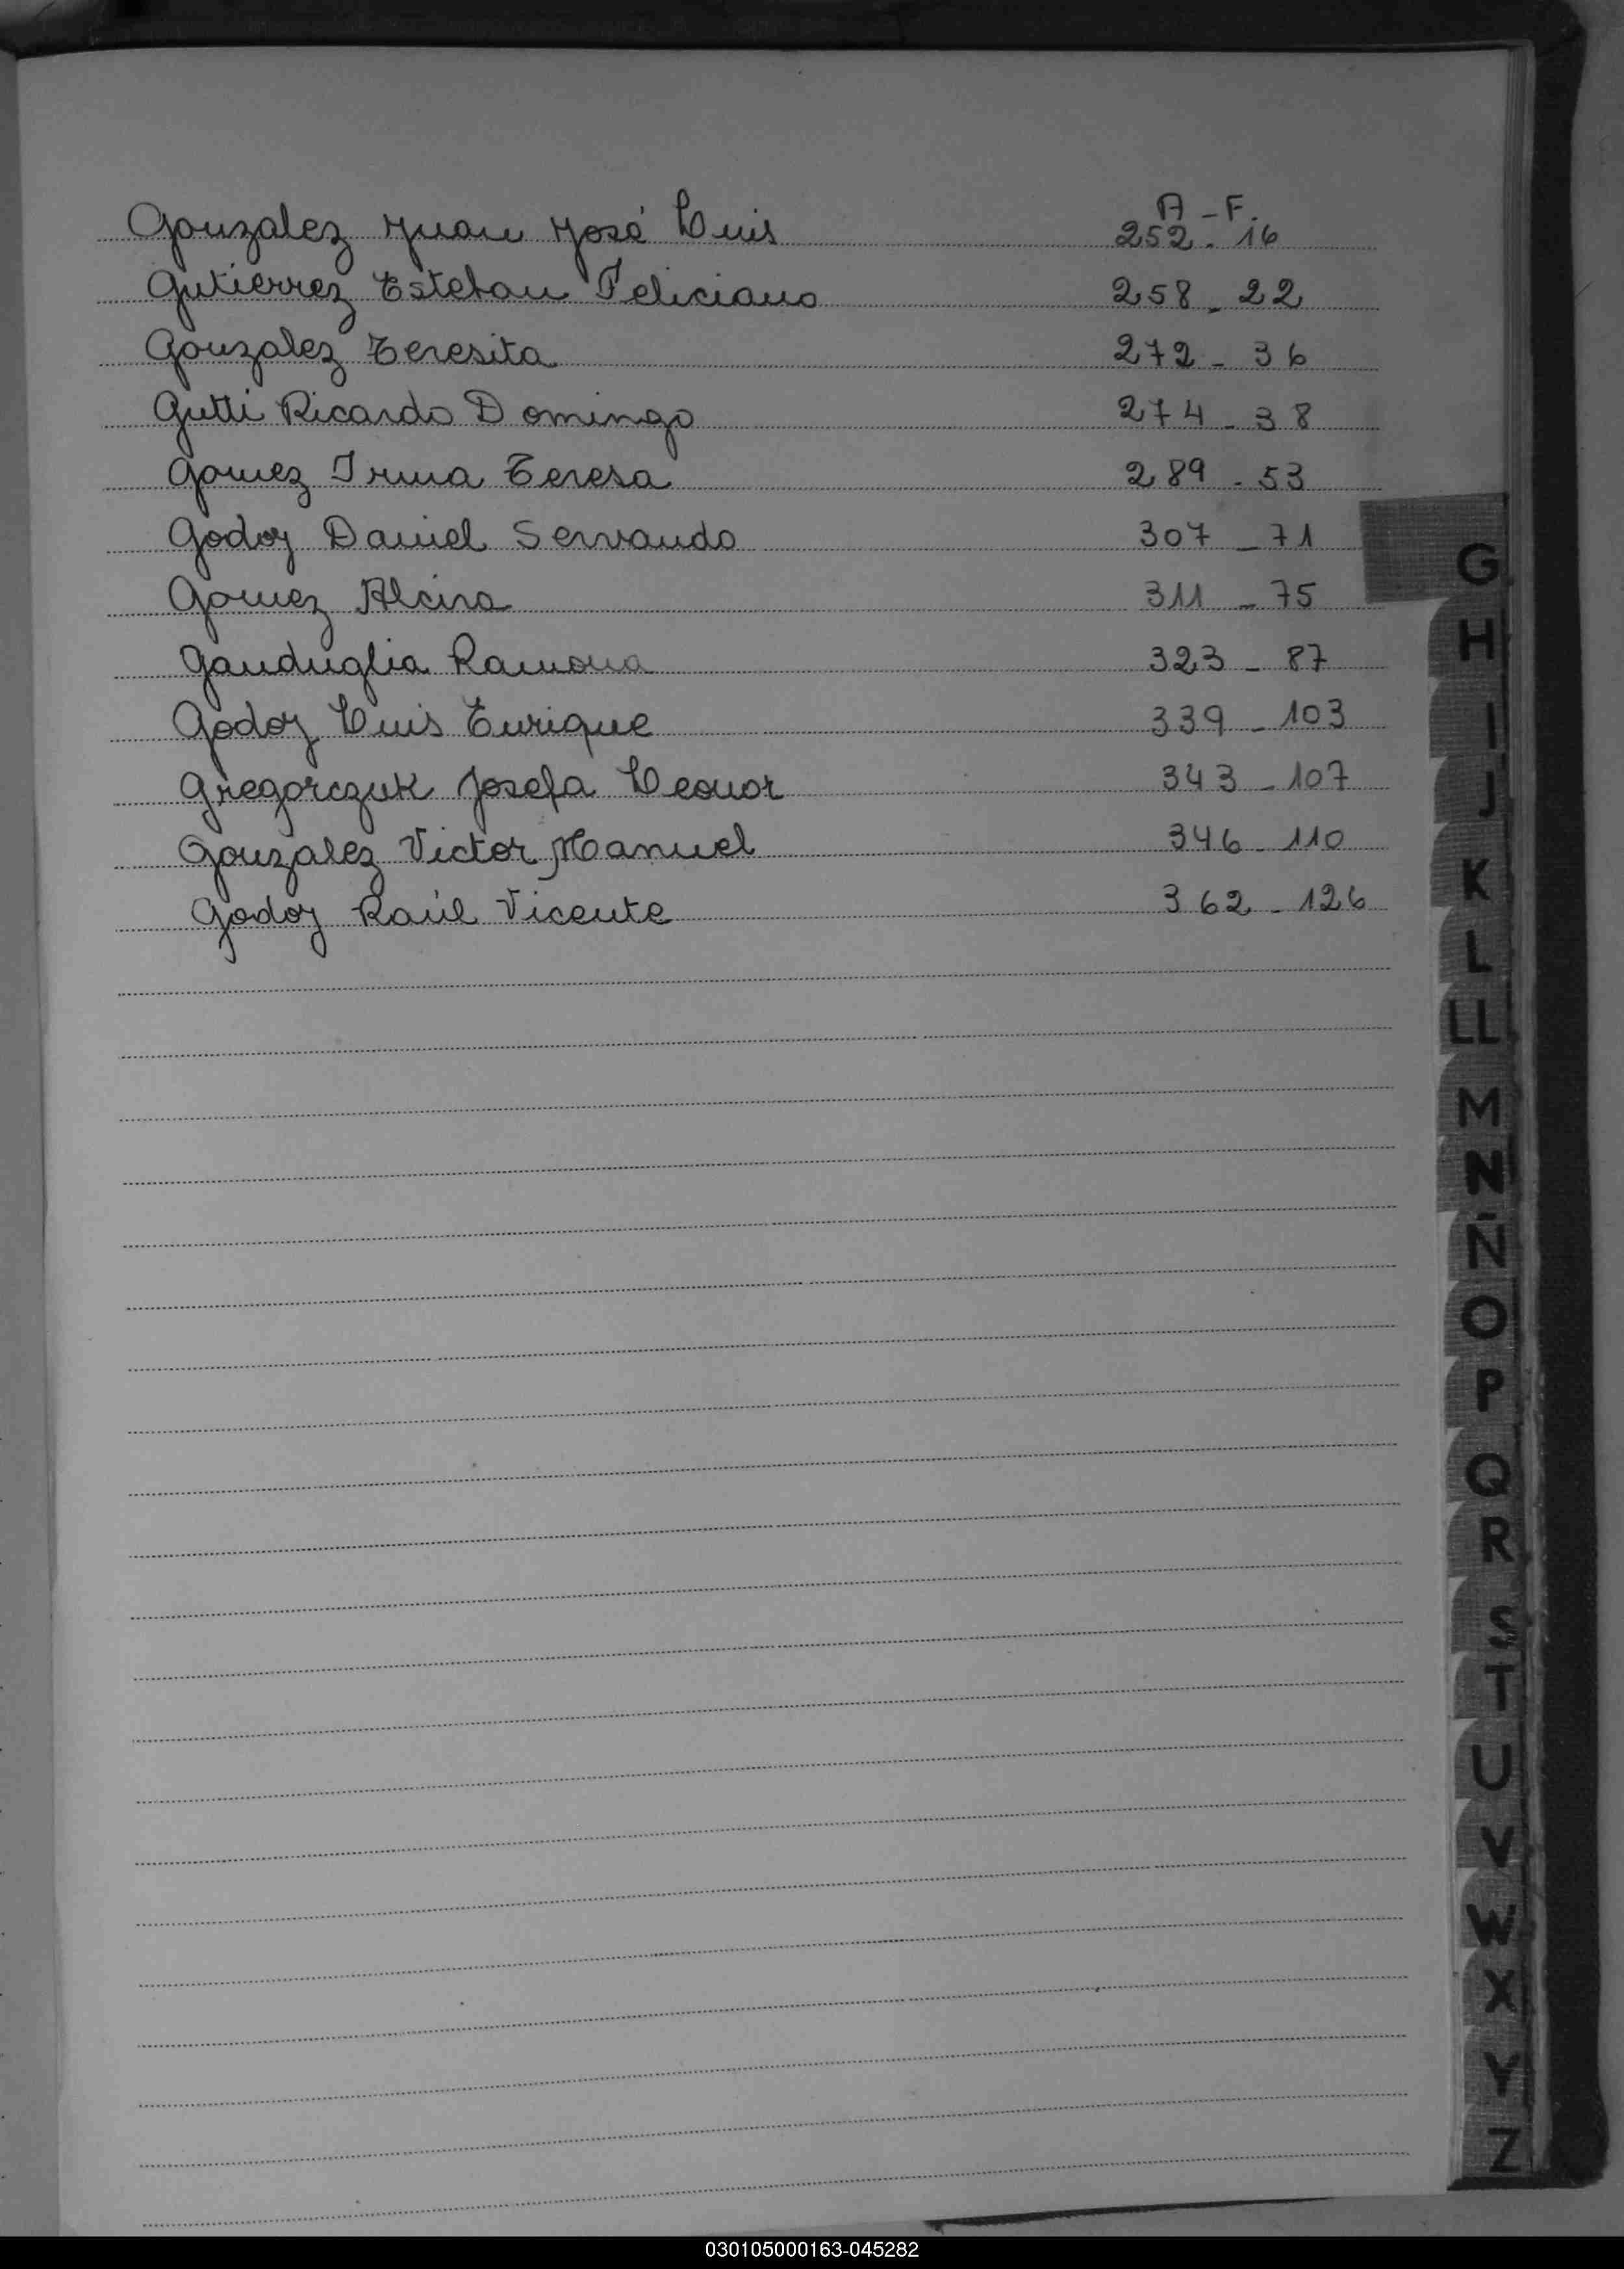 A - F.
Gonzalez Juan José Luis 252 - 16
Gutierrez Esteban Feliciano 258 - 22
Gonzalez Teresita 272 - 36
Gutti Ricardo Domingo 274 - 38
Gomez Irma Teresa 289 - 53
Godoy Daniel Servando 307 - 71
Gomez Alcira 311 - 75
Ganduglia Ramona 323 - 87
Godoy Luis Enrique 339 - 103
Gregorczuk Josefa Leonor 343 - 107
Gonzalez Victor Manuel 346 - 110
Godoy Raúl Vicente 362 - 126
G
H
I
J
K
L
LL
M
N
Ñ
O
P
Q
R
S
T
U
V
W
X
Y
Z
030105000163-045282